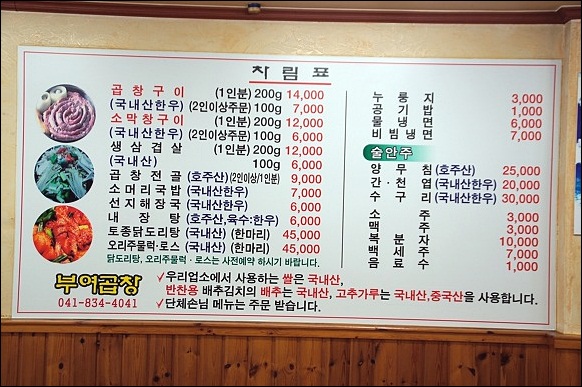 차림표
곱창구이 (1인분) 200g 14,000
(국내산한우) (2인이상주문) 100g 7,000
소막창구이 (1인분) 200g 12,000
(국내산한우) (2인이상주문) 100g 6,000
생삼겹살 (1인분) 200g 12,000
(국내산) 100g 6,000
곱창전골 (호주산)(2인이상/1인분) 9,000
소머리국밥 (국내산한우) 7,000
선지해장국 (국내산한우) 6,000
내장탕 (호주산,육수·한우) 6,000
토종닭도리탕 (국내산) (한마리) 45,000
오리주물럭·로스 (국내산) (한마리) 45,000
닭도리탕, 오리주물럭·로스는 사전예약 하시기 바랍니다.
누룽지 3,000
공기밥 1,000
물냉면 6,000
비빔냉면 7,000
술안주
양무침 (호주산) 25,000
간·천엽 (국내산한우) 20,000
수구리 (국내산한우) 30,000
소주 3,000
맥주 3,000
복분자 10,000
백세주 7,000
음료수 1,000
부여곱창
041-834-4041
✓우리업소에서 사용하는 쌀은 국내산,
반찬용 배추김치의 배추는 국내산, 고추가루는 국내산,중국산을 사용합니다.
✓단체손님 메뉴는 주문 받습니다.